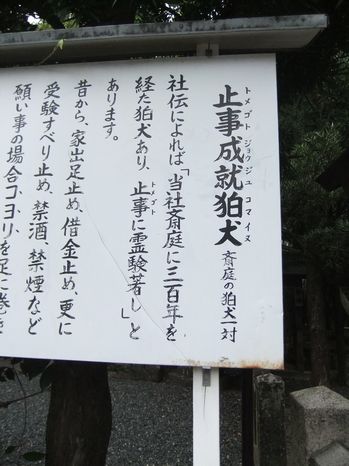 止事成就狛犬 斎庭の狛犬一対
トメゴト ジョウジュ コマイヌ
社伝によれば「当社斎庭に三百年を
経た狛犬あり、止事に霊験著し」と
トメゴト
あります。
昔から、家出足止め、借金止め、更に
受験すべり止め、禁酒、禁煙など
願い事の場合、コヨリを足に巻き